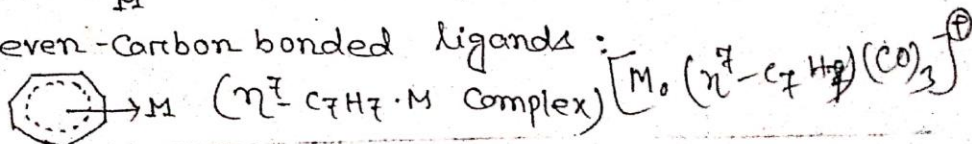 even-Carbon bonded ligands :
→M (η⁷- C₇H₇·M Complex) [Mo (η⁷-C₇H₇)(CO)₃]⊕